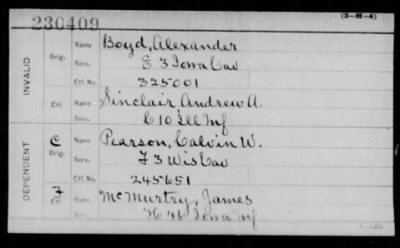 230409
(3-H-4)
INVALID
Orig.
Name Boyd, Alexander
Serv. E 3 Iowa Cav
Ctf. No. 325001
Ctf.
Name Sinclair Andrew A.
Serv. C 10 Ill Inf
DEPENDENT
C
Orig.
Name Pearson, Calvin W.
Serv. F 3 Wis Cav
Ctf. No. 245651
Ctf.
Name McMurtry, James
Serv. 46 Iowa Inf